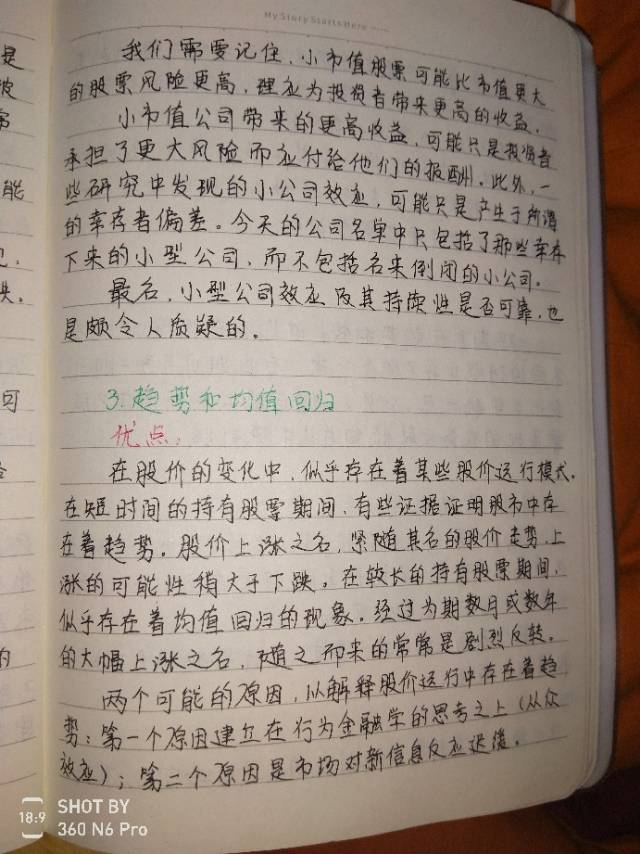 My Story Starts Here
是
我们需要记住，小市值股票可能比市值更大
的股票风险更高，理应为投资者带来更高的收益。
小市值公司带来的更高收益，可能只是投资者
承担了更大风险而应付给他们的报酬。此外，一
能
些研究中发现的小公司效应，可能只是产生于所谓
的幸存者偏差。今天的公司名单中只包括了那些幸存
下来的小型公司，而不包括名来倒闭的小公司。
最名，小型公司效应及其持续性是否可靠，也
是颇令人质疑的。
可
3.趋势和均值回归
优点：
在股价的变化中，似乎存在着某些股价运行模式。
在短时间的持有股票期间，有些证据证明股市中存
在着趋势。股价上涨之名，紧随其名的股价走势，上
涨的可能性稍大于下跌。在较长的持有股票期间，
似乎存在着均值回归的现象。经过为期数月或数年
的
的大幅上涨之名，随之而来的常常是剧烈反转。
两个可能的原因，以解释股价运行中存在着趋
势：第一个原因建立在行为金融学的思考之上（从众
效应）；第二个原因是市场对新信息反应迟缓。
18:9
SHOT BY
360 N6 Pro